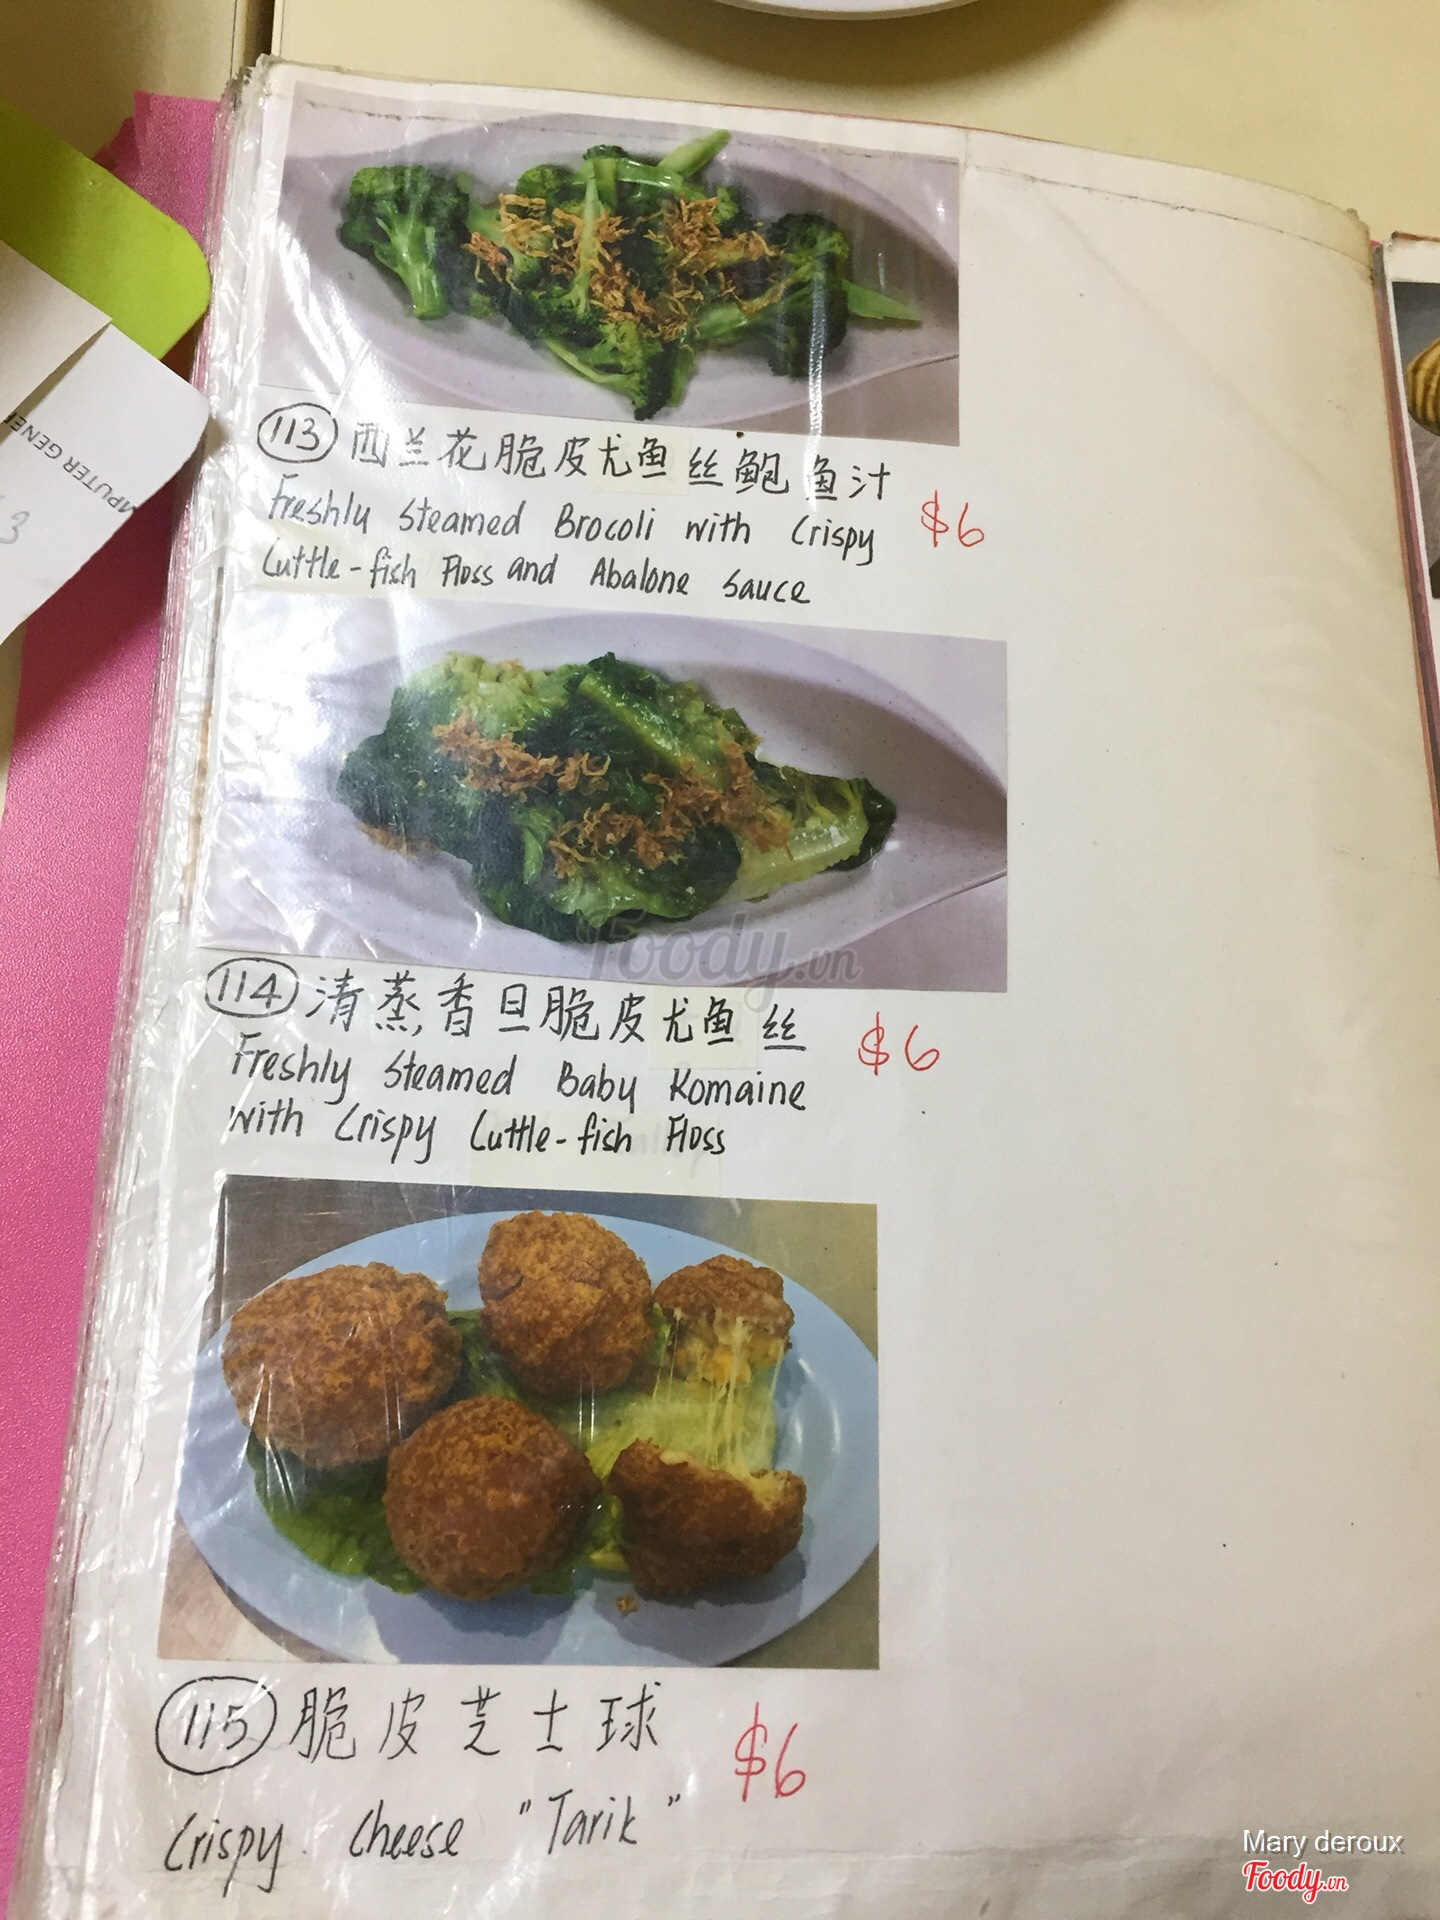 MPUTER GENE
3
113 西兰花脆皮尤鱼丝鲍鱼汁
Freshly Steamed Brocoli with Crispy $6
Cuttle-fish Floss and Abalone Sauce
Foody.vn
114 清蒸香旦脆皮尤鱼丝 $6
Freshly Steamed Baby Romaine
with Crispy Cuttle-fish Floss
115 脆皮芝士球 $6
Crispy Cheese "Tarik"
Mary deroux
Foody.vn